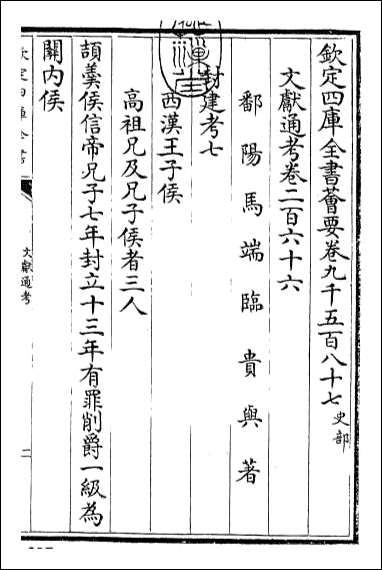 欽定四庫全書薈要卷九千五百八十七史部
文獻通考卷二百六十六
鄱陽馬端臨貴與著
封建考七
西漢王子侯
高祖兄及兄子侯者三人
頡羹侯信帝兄子七年封立十三年有罪削爵一級為
關内侯
文獻通考
二